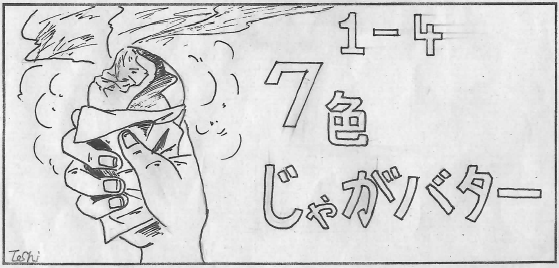 1-4
7色
じゃがバター
Toshi